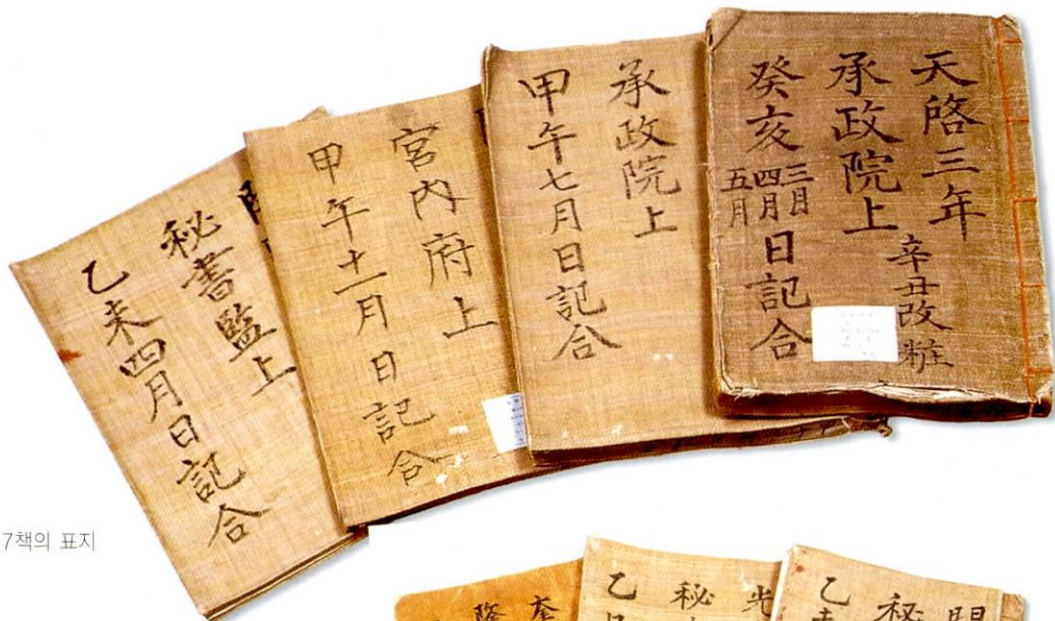 天啓三年
承政院上
癸亥三月四月五月日記合
辛丑改粧
承政院上
甲午七月日記合
宮內府上
甲午十一月日記合
秘書監上
乙未四月日記合
7책의 표지
秘
乙
秘
乙未